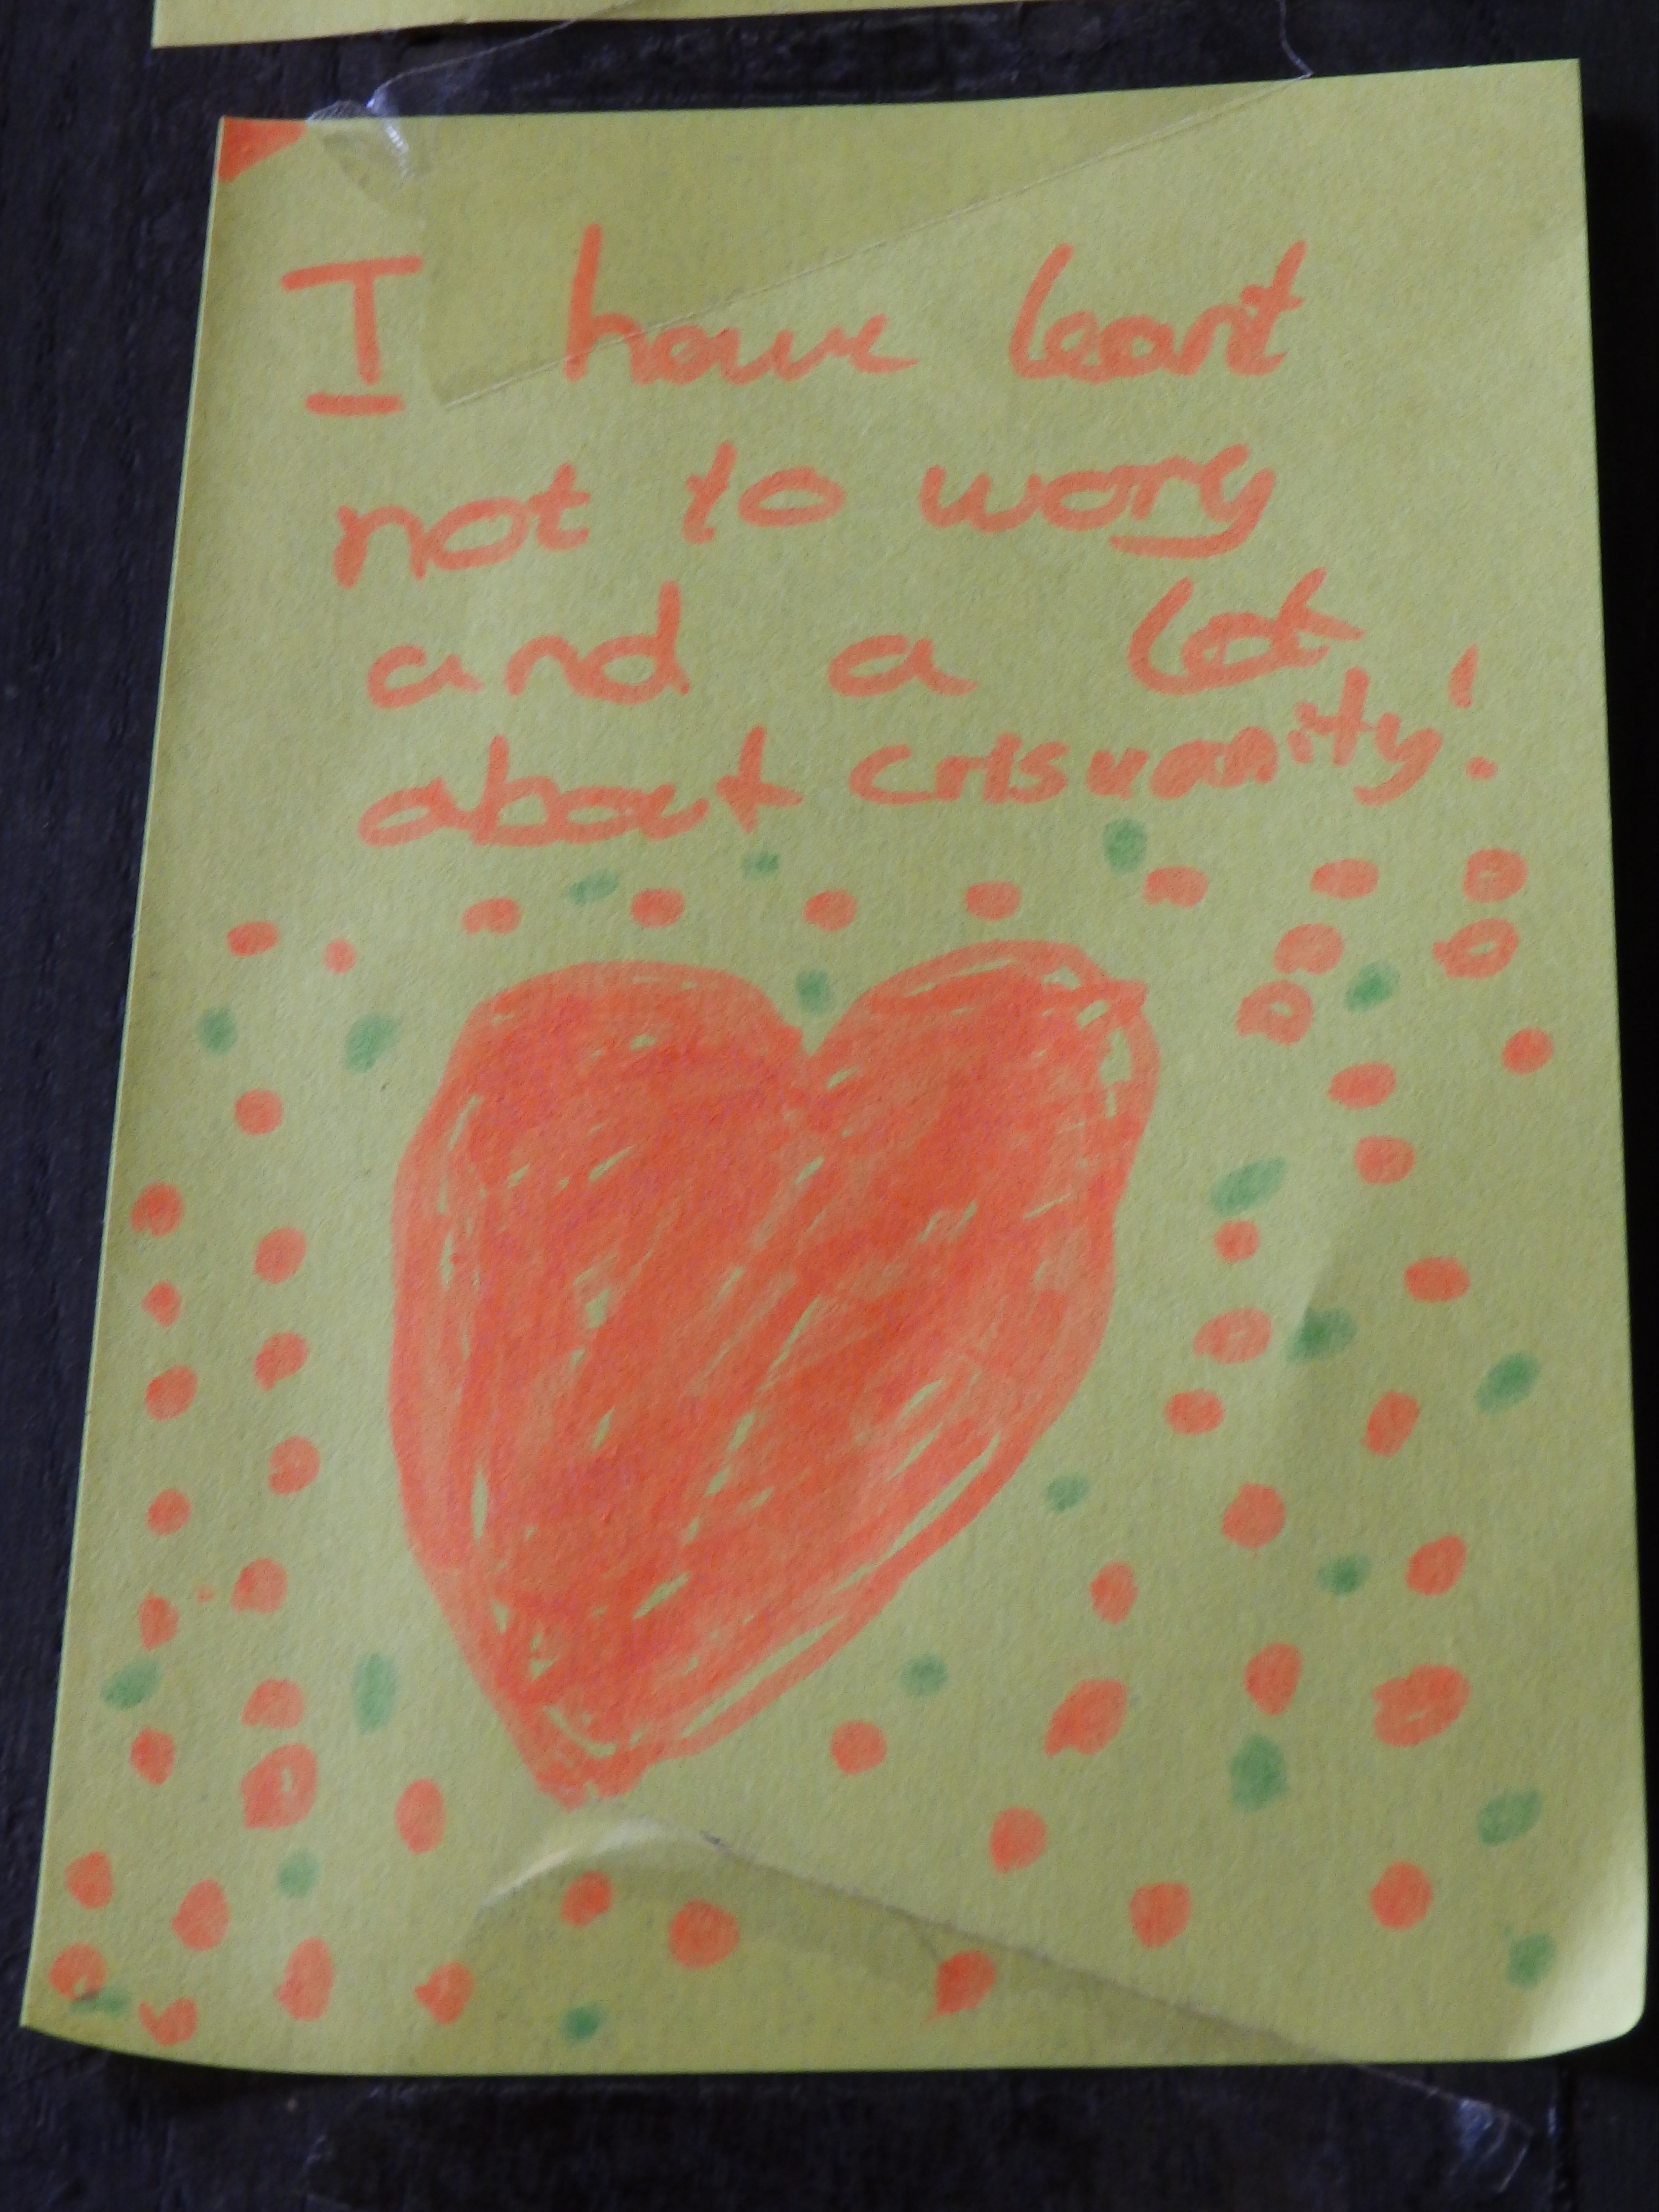 I have learnt
not to worry
and a lot
about crisuanity!